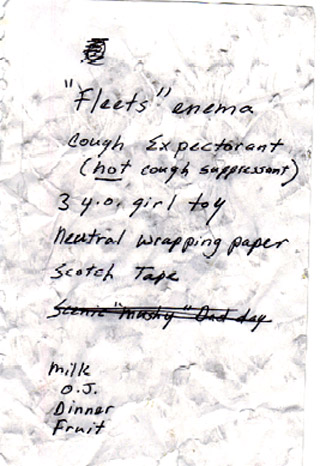 "Fleets" enema
Cough Expectorant
(not cough suppressant)
3 y.o. girl toy
Neutral wrapping paper
Scotch Tape
Scenic "mushy" Dad day
Milk
O.J.
Dinner
Fruit